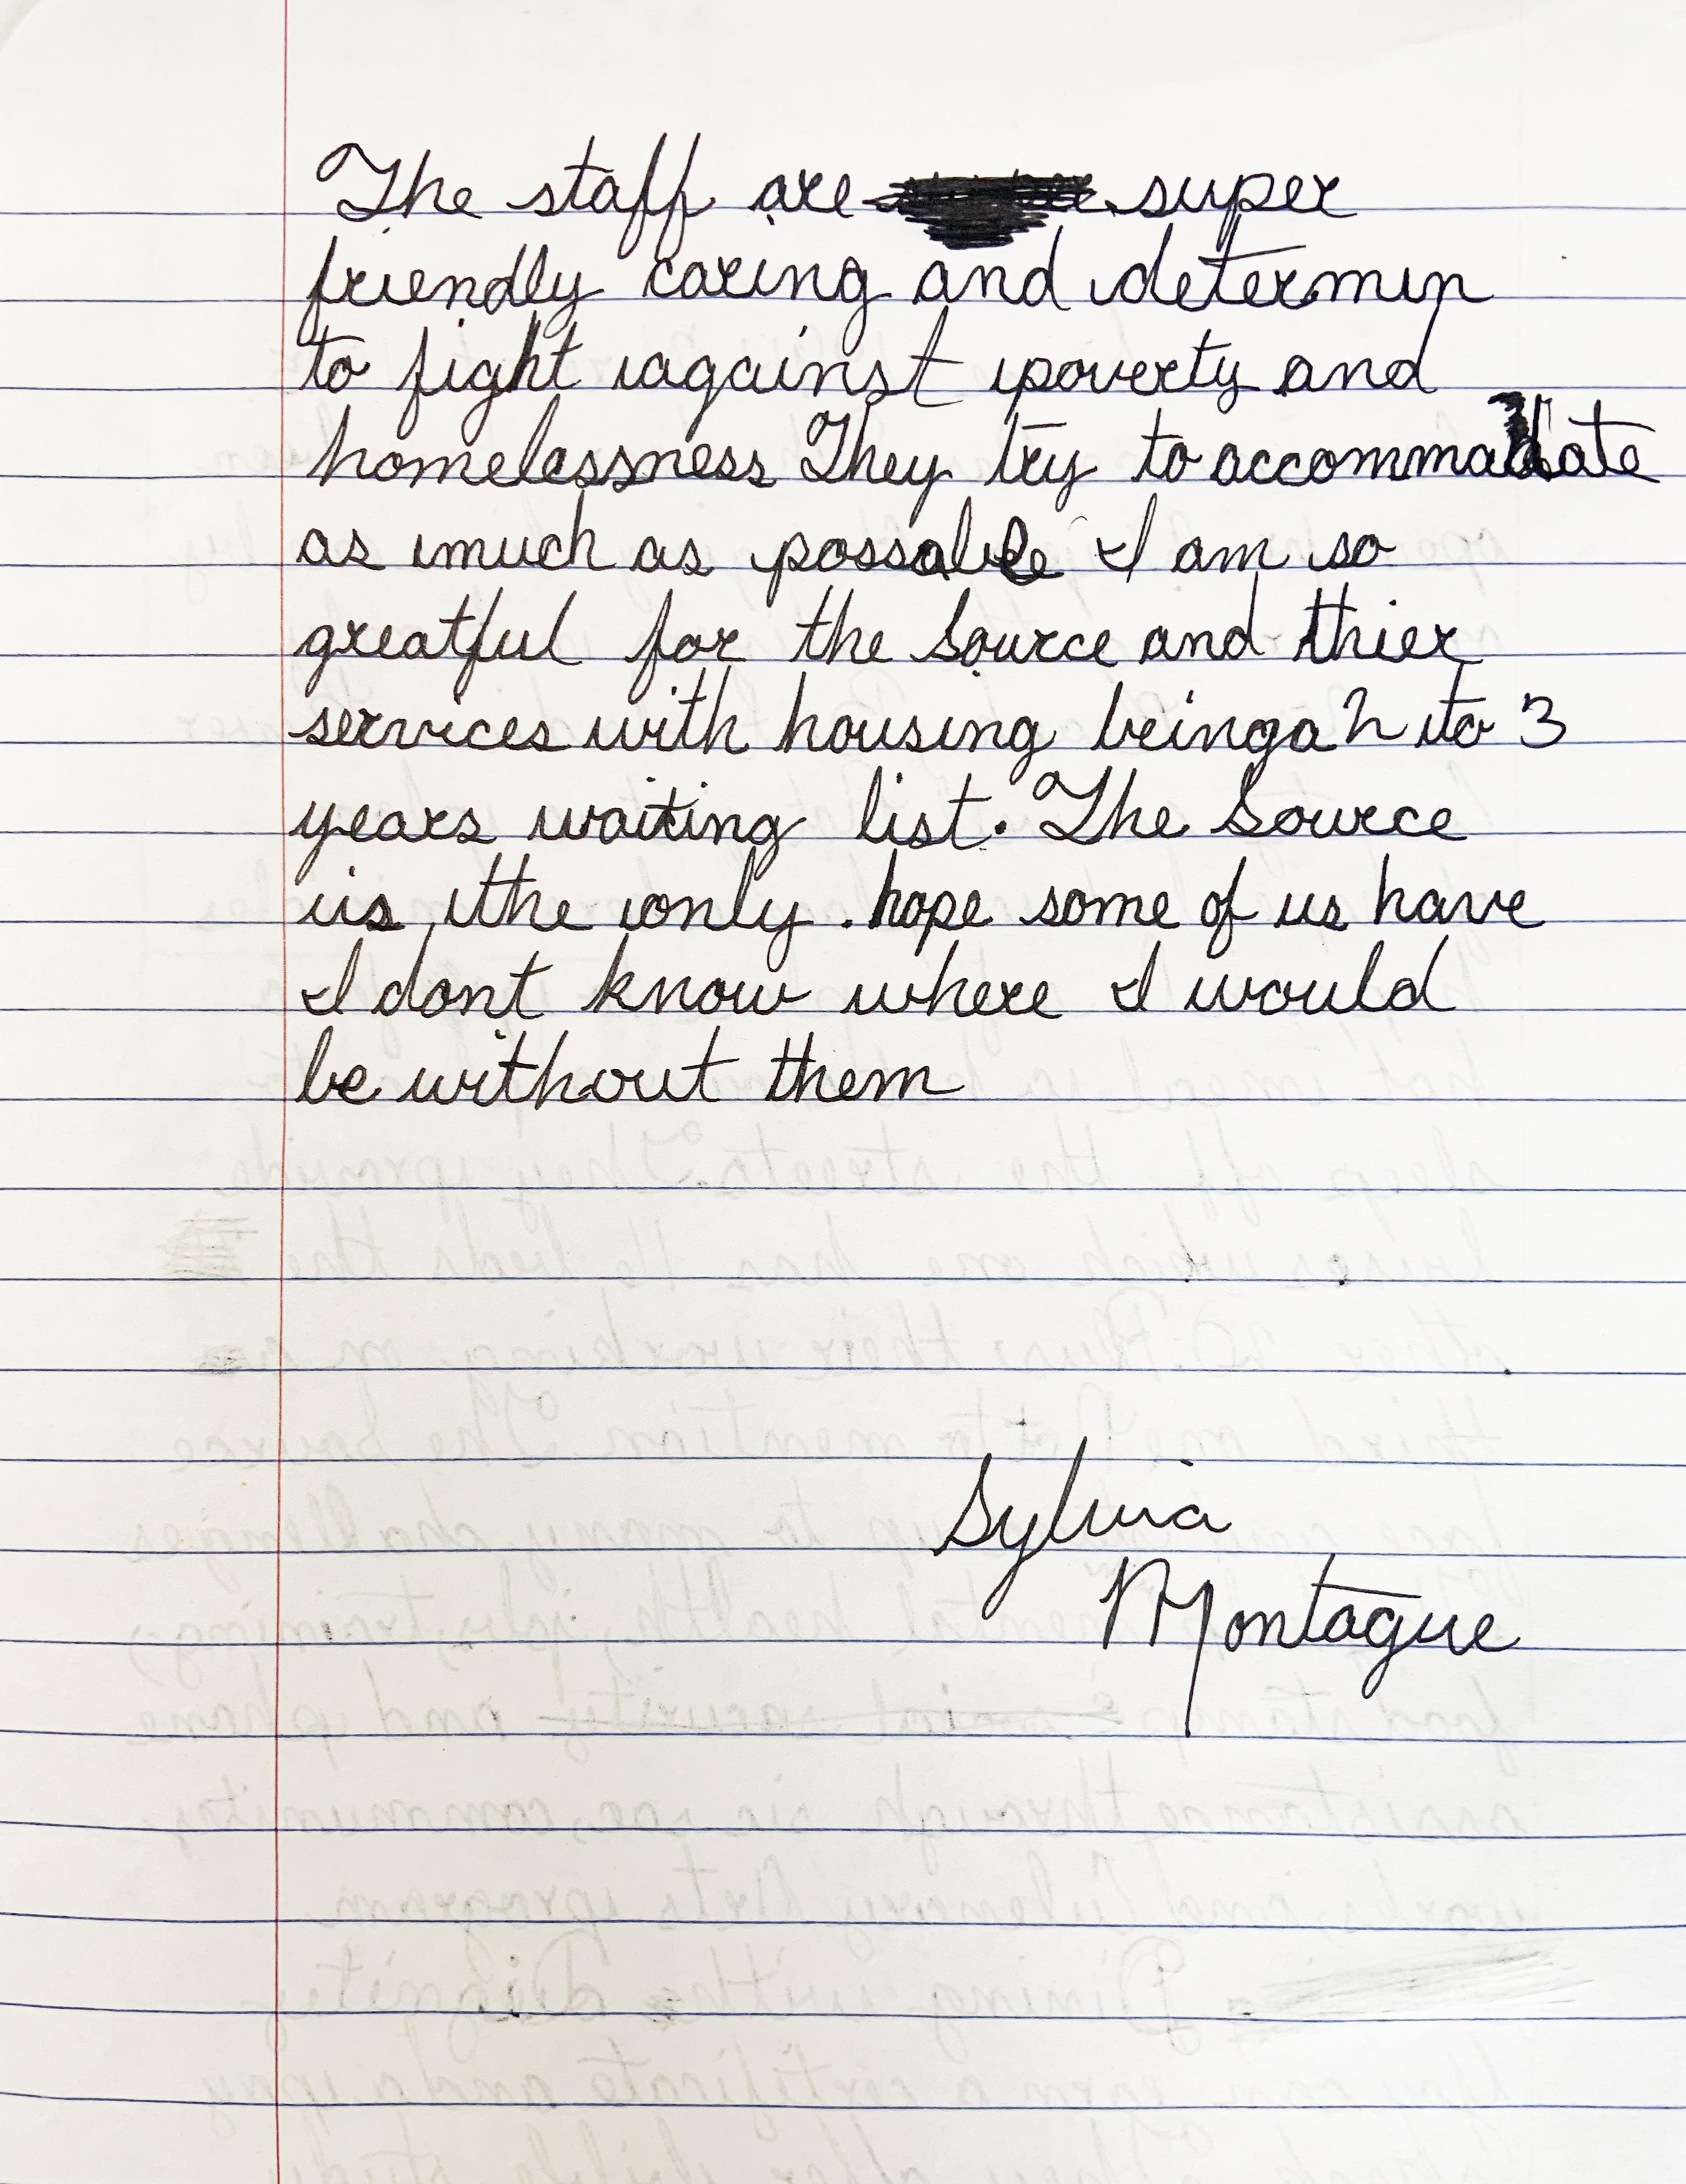 The staff are super
friendly caring and determin
to fight against poverty and
homelessness They try to accommadate
as much as possable I am so
greatful for the Source and thier
services with housing being a 2 to 3
years waiting list. The Source
is the only hope some of us have
I dont know where I would
be without them
Sylvia
Montague